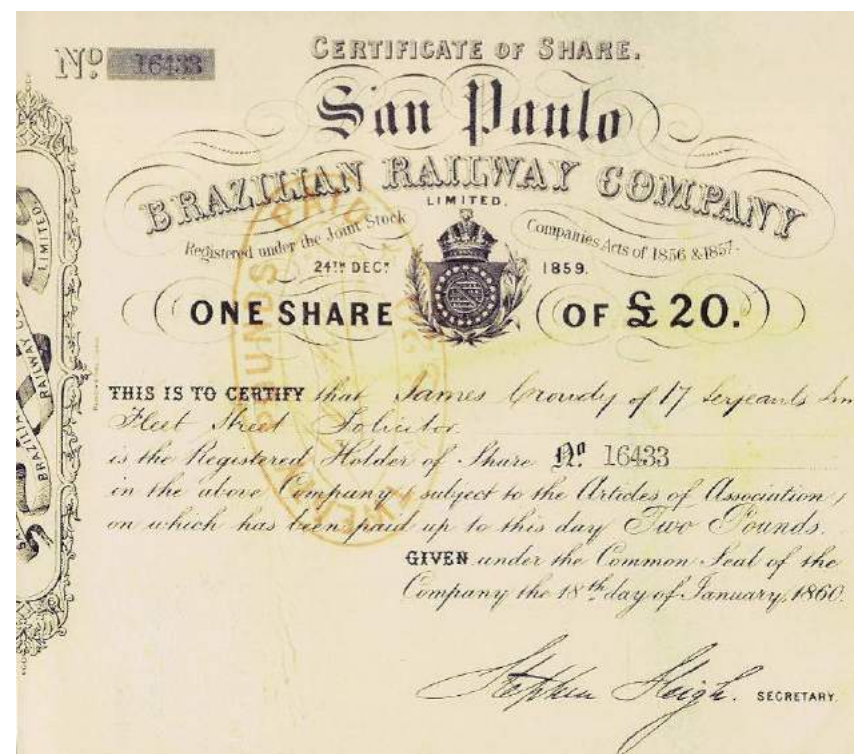 CERTIFICATE OF SHARE.
Nº 16433
San Paulo
BRAZILIAN RAILWAY COMPANY
LIMITED.
Registered under the Joint Stock Companies Acts of 1856 & 1857.
24TH DECR 1859.
ONE SHARE OF £20.
THIS IS TO CERTIFY that James Crowdy of 17 Serjeants Inn
Fleet Street Solicitor
is the Registered Holder of Share Nº 16433
in the above Company (subject to the Articles of Association)
on which has been paid up to this day Two Pounds.
GIVEN under the Common Seal of the
Company the 18th day of January, 1860.
Stephen Sleigh. SECRETARY.
LIMITED.
RAILWAY CO
BRAZILIAN
POUNDS PAID